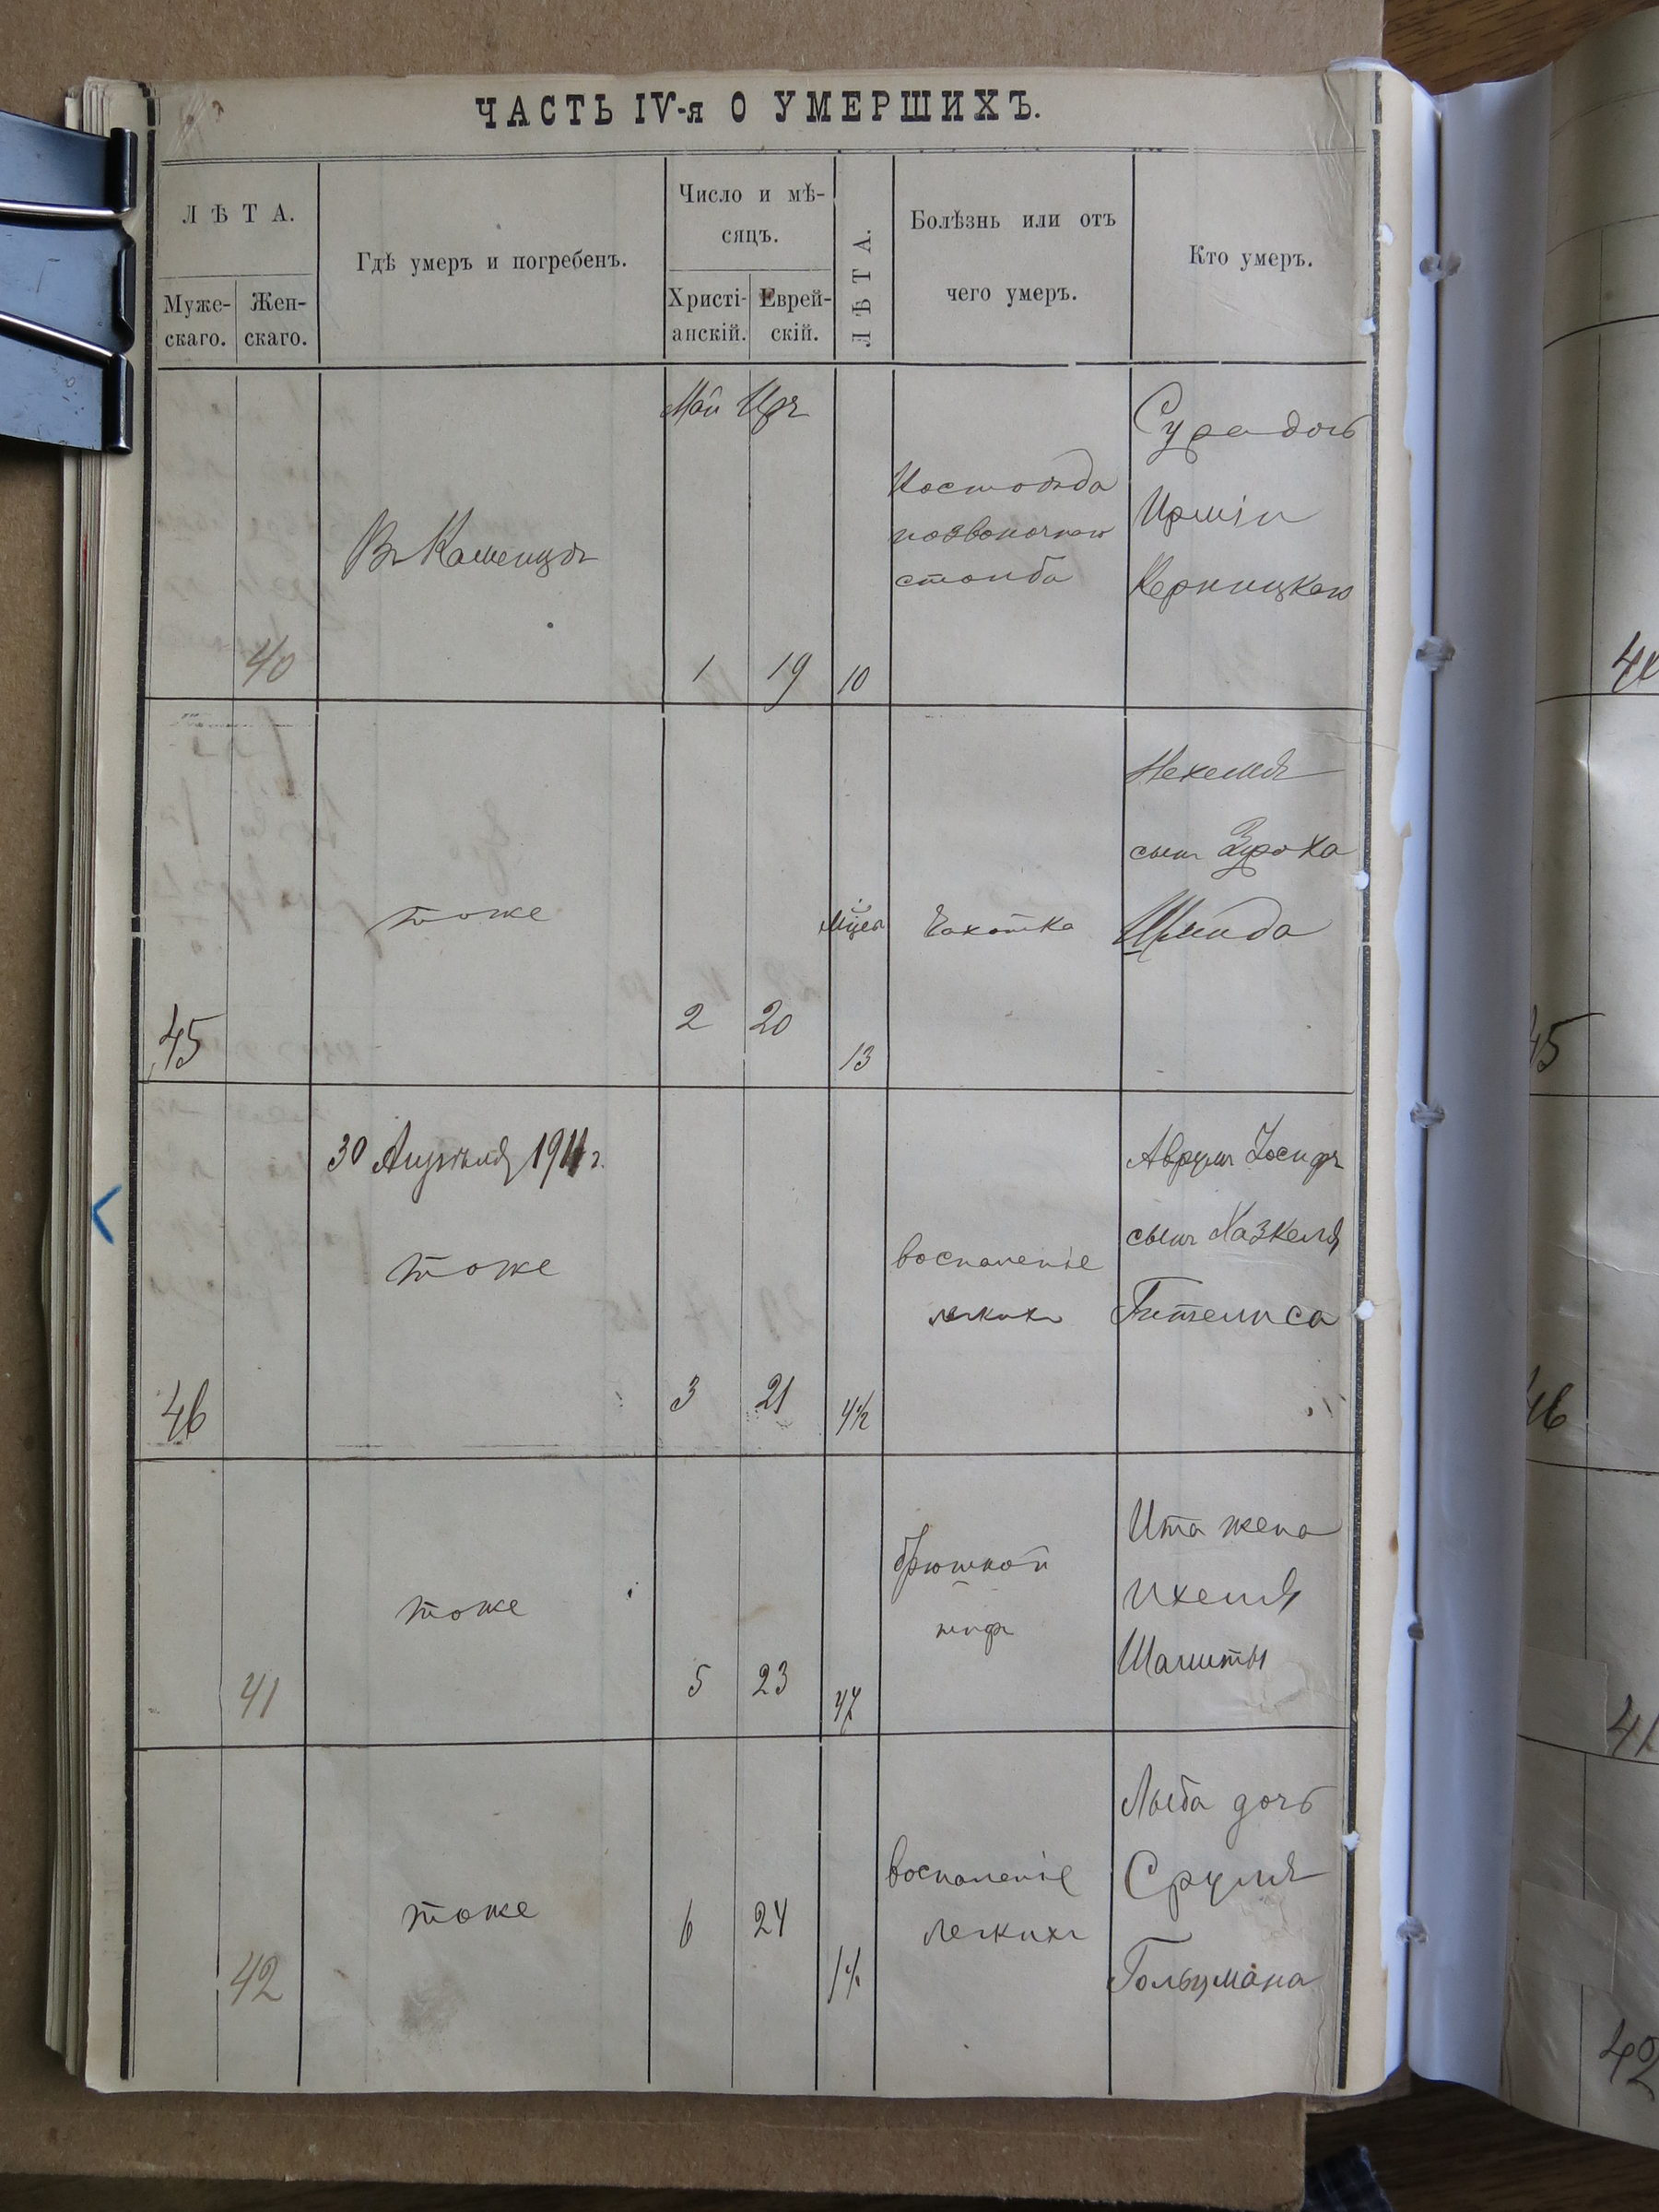 ЧАСТЬ IV-я О УМЕРШИХЪ.
ЛѢТА.
Муже-
скаго.
Жен-
скаго.
Гдѣ умеръ и погребенъ.
Число и мѣ-
сяцъ.
Христі-
анскій.
Еврей-
скій.
ЛѢТА.
Болѣзнь или отъ
чего умеръ.
Кто умеръ.
Май Иръ
40
Въ Каменцѣ
1
19
10
позвоночнаго
столба
Сура дочь
Иршін
Керницкаго
45
тоже
2
20
Мцев
13
Чахотка
Нехемія
сынъ Зороха
Шмида
46
30 Апрѣля 1911 г.
тоже
3
21
4½
воспаленіе
легкихъ
Аврумъ Іосифъ
сынъ Хазкеля
Гителиса
41
тоже
5
23
47
брюшной
тифъ
Ита жена
Ихеля
Шамиты
42
тоже
6
24
воспаленіе
легкихъ
Лыба дочь
Сруля
Гольцмана
45
46
41
42